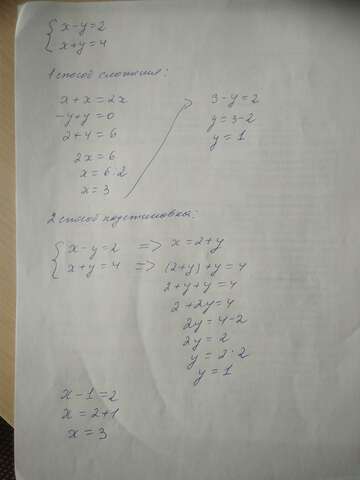 x-y=2
x+y=4
1 способ сложения:
x+x=2x
-y+y=0
2+4=6
2x=6
x=6:2
x=3
3-y=2
y=3-2
y=1
2 способ подстановки:
x-y=2 => x=2+y
x+y=4 => (2+y)+y=4
2+y+y=4
2+2y=4
2y=4-2
2y=2
y=2:2
y=1
x-1=2
x=2+1
x=3